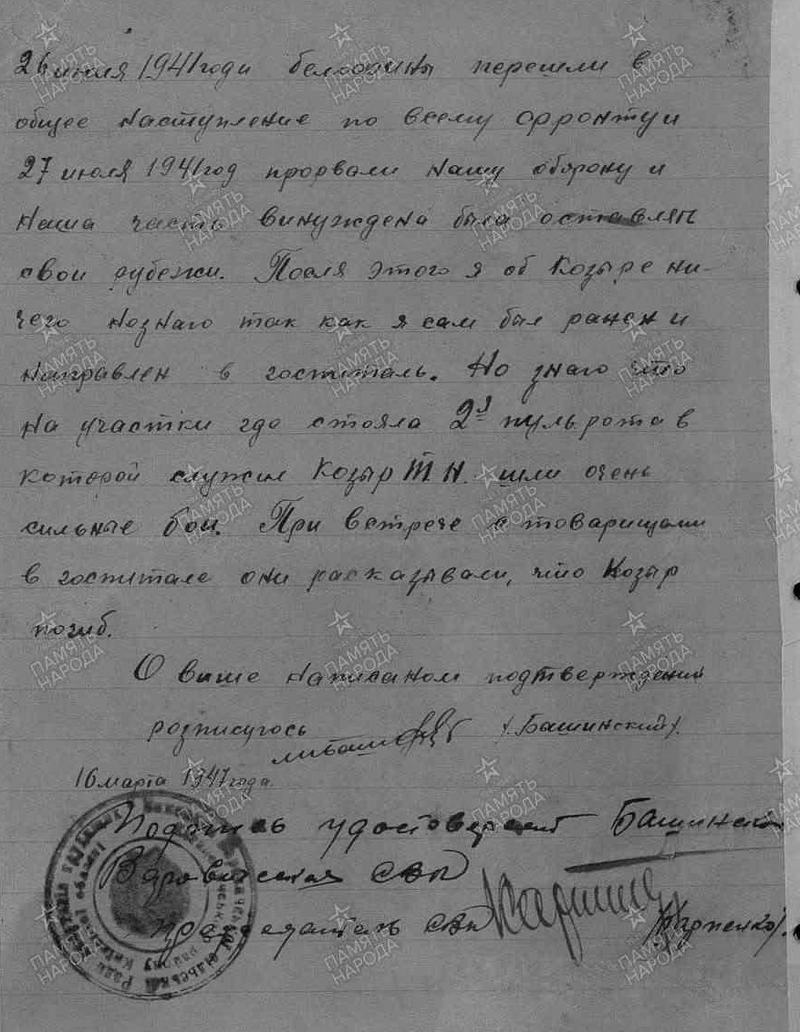 26 июля 1941 годи белофины перешли в
общее наступление по всему фронту и
27 июля 1941 год прорвали нашу оборону и
наша часть винуждена была оставлять
свои рубежи. После этого я об Козыре ни-
чего незнаю так как я сам был ранен и
направлен в госпиталь. Но знаю что
на участки где стояла 2я пульрота в
которой служил Козыр Т.Н. шли очень
сильные бои. При встрече с товарищами
в госпитале они расказывали, что Козыр
погиб.
О више написаном подтверждении
розписуюсь (Башинский).
16 марта 1947 года.
Подпись удостоверяет Башинского
председатель (Карпенко).
ПАМЯТЬ НАРОДА